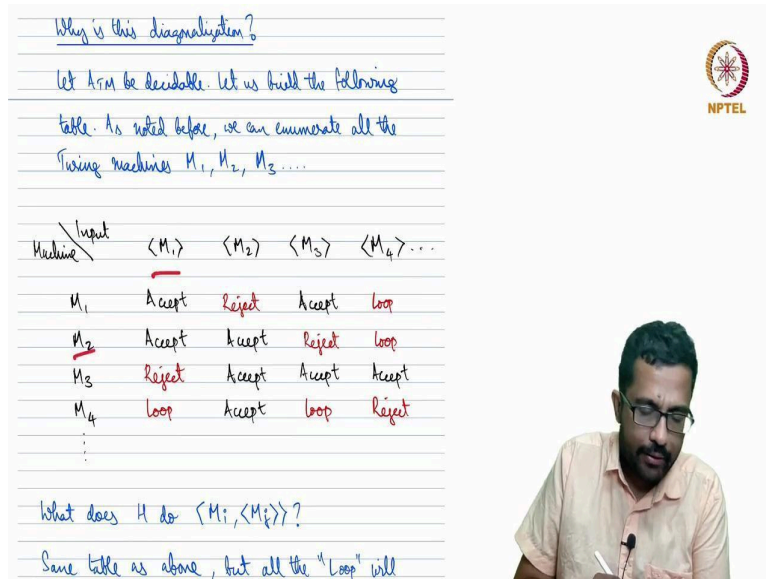 Why is this diagonalization?
Let ATM be decidable. Let us build the following
table. As noted before, we can enumerate all the
Turing machines M1, M2, M3 ....
NPTEL
Machine \ Input ⟨M1⟩ ⟨M2⟩ ⟨M3⟩ ⟨M4⟩ ...
M1 Accept Reject Accept Loop
M2 Accept Accept Reject Loop
M3 Reject Accept Accept Accept
M4 Loop Accept Loop Reject
What does H do ⟨Mi, ⟨Mj⟩⟩?
Same table as above, but all the "Loop" will